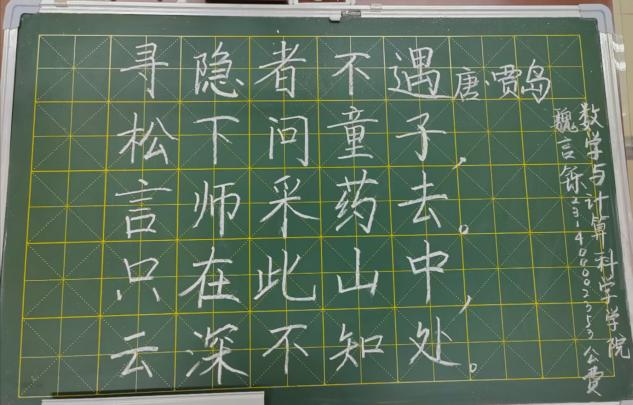 寻隐者不遇 唐·贾岛
松下问童子,
言师采药去。
只在此山中,
云深不知处。
数学与计算科学学院
魏言铄 公费